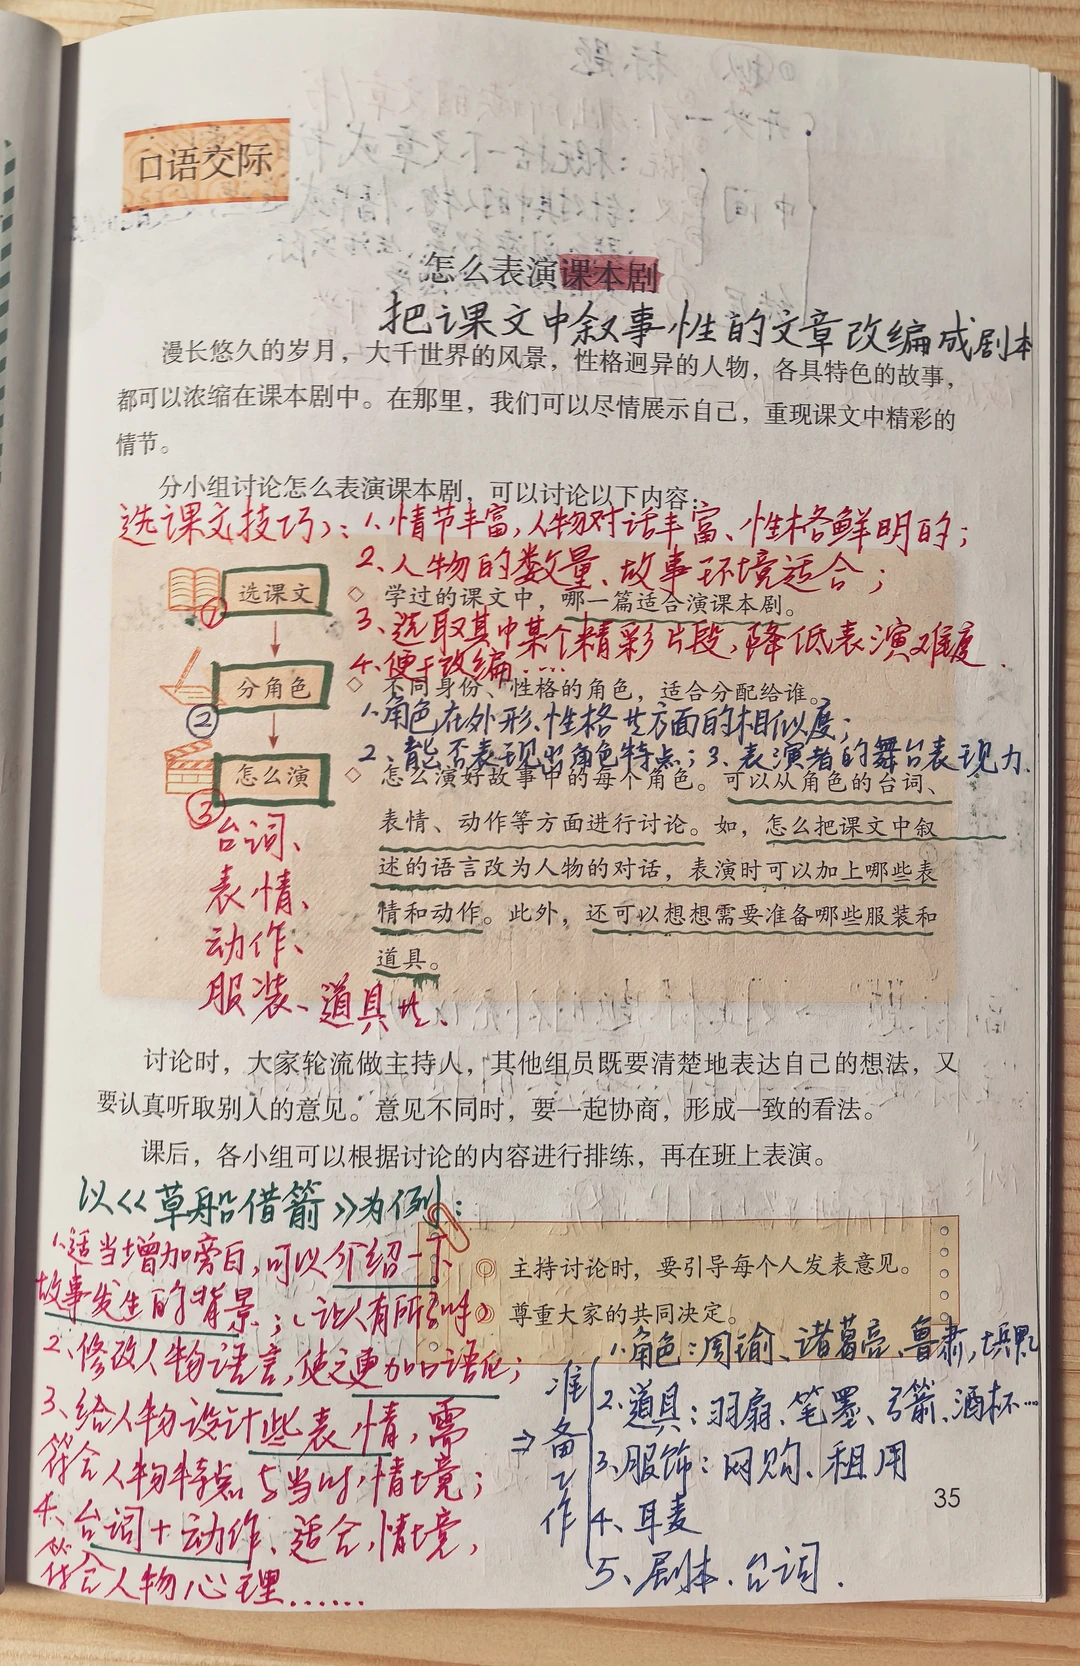 口语交际
怎么表演课本剧
把课文中叙事性的文章改编成剧本
漫长悠久的岁月，大千世界的风景，性格迥异的人物，各具特色的故事，
都可以浓缩在课本剧中。在那里，我们可以尽情展示自己，重现课文中精彩的
情节。
分小组讨论怎么表演课本剧，可以讨论以下内容：
选课文技巧：1、情节丰富，人物对话丰富、性格鲜明的；
2、人物的数量、故事环境适合；
① 选课文
◇ 学过的课文中，哪一篇适合演课本剧。
3、选取其中某个精彩片段，降低表演难度.
4、便于改编……
② 分角色
◇ 不同身份、性格的角色，适合分配给谁。
1、角色在外形、性格等方面的相似度；
2、能否表现出角色特点；3、表演者的舞台表现力.
③ 怎么演
◇ 怎么演好故事中的每个角色。可以从角色的台词、
表情、动作等方面进行讨论。如，怎么把课文中叙
述的语言改为人物的对话，表演时可以加上哪些表
情和动作。此外，还可以想想需要准备哪些服装和
道具。
台词、
表情、
动作、
服装、道具等、
讨论时，大家轮流做主持人，其他组员既要清楚地表达自己的想法，又
要认真听取别人的意见。意见不同时，要一起协商，形成一致的看法。
课后，各小组可以根据讨论的内容进行排练，再在班上表演。
以《草船借箭》为例：
1、适当增加旁白，可以介绍一下
故事发生的背景；（让人有所
2、修改人物语言，使之更加口语化；
3、给人物设计些表情，需
符合人物特点与当时情境；
4、台词+动作、适合情境，
符合人物心理……
◎ 主持讨论时，要引导每个人发表意见。
◎ 尊重大家的共同决定。
⇒准备工作
1、角色：周瑜、诸葛亮、鲁肃，士兵
2、道具：羽扇、笔墨、弓箭、酒杯…
3、服饰：网购、租用
4、耳麦
5、剧本、台词.
35